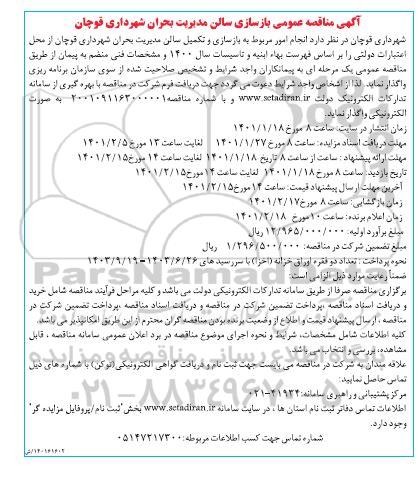 آگهی مناقصه عمومی بازسازی سالن مدیریت بحران شهرداری قوچان
شهرداری قوچان در نظر دارد انجام امور مربوط به بازسازی و تکمیل سالن مدیریت بحران شهرداری قوچان از محل
اعتبارات دولتی را بر اساس فهرست بهاء ابنیه و تاسیسات سال ۱۴۰۰ و مشخصات فنی منضم به پیمان از طریق
مناقصه عمومی یک مرحله ای به پیمانکاران واجد شرایط و تشخیص صلاحیت شده از سوی سازمان برنامه ریزی
واگذار نماید. لذا از اشخاص واجد شرایط دعوت می گردد جهت دریافت فرم شرکت در مناقصه با بهره گیری از سامانه
تدارکات الکترونیکی دولت www.sctadiran.ir و با شماره مناقصه ۲۰۰۱۰۹۱۱۶۳۰۰۰۰۰۱ به صورت
الکترونیکی واگذار نماید.
زمان انتشار در سایت: ساعت ۸ مورخ ۱۴۰۱/۱/۱۸
مهلت دریافت اسناد مزایده: ساعت ۸ مورخ ۱۴۰۱/۱/۲۷ لغایت ساعت ۱۳ مورخ ۱۴۰۱/۲/۵
مهلت ارائه پیشنهاد : ساعت از ساعت ۸ تاریخ ۱۴۰۱/۱/۱۸ لغایت ساعت ۱۴ مورخ ۱۴۰۱/۲/۱۵
تاریخ بازدید: ساعت ۸ مورخ ۱۴۰۱/۱/۱۸ لغایت ساعت ۱۴ مورخ ۱۴۰۱/۲/۱۵
آخرین مهلت ارسال پیشنهاد قیمت: ساعت ۱۴ مورخ ۱۴۰۱/۲/۱۵
زمان بازگشایی: ساعت ۸ مورخ ۱۴۰۱/۲/۱۷
زمان اعلام برنده: ساعت ۱۰ مورخ ۱۴۰۱/۲/۱۸
مبلغ برآورد اولیه: ۱۲/۹۶۵/۰۰۰/۰۰۰ ریال
مبلغ تضمین شرکت در مناقصه: ۱/۲۹۶/۵۰۰/۰۰۰ ریال
نحوه پرداخت : تعداد دو فقره اوراق خزانه (اخزا) با سررسید های ۱۴۰۳/۶/۲۶ – ۱۴۰۳/۹/۱۹
ضمنا رعایت موارد ذیل الزامی است:
برگزاری مناقصه صرفا از طریق سامانه تدارکات الکترونیکی دولت می باشد و کلیه مراحل فرآیند مناقصه شامل خرید
و دریافت اسناد مناقصه ،پرداخت تضمین شرکت در مناقصه و دریافت اسناد مناقصه ،پرداخت تضمین شرکت در
مناقصه ، ارسال پیشنهاد قیمت و اطلاع از وضعیت برنده بودن مناقصه گران محترم از این طریق امکانپذیر می باشد.
کلیه اطلاعات شامل مشخصات، شرایط و نحوه اجرای موضوع مناقصه در برد اعلان عمومی سامانه مناقصه ، قابل
مشاهده، بررسی و انتخاب می باشد.
علاقه مندان به شرکت در مناقصه می بایست جهت ثبت نام و دریافت گواهی الکترونیکی (توکن) با شماره های ذیل
تماس حاصل نمایید:
مرکز پشتیبانی و راهبری سامانه: ۴۱۹۳۴-۰۲۱
اطلاعات تماس دفاتر ثبت نام استان ها ، در سایت سامانه www.sctadiran.ir بخش"ثبت نام/پروفایل مزایده گر"
وجود دارد.
شماره تماس جهت کسب اطلاعات مربوطه: ۰۵۱۴۷۲۱۷۳۰۰
۱۴۰۱۶۱۶۰۲/ش